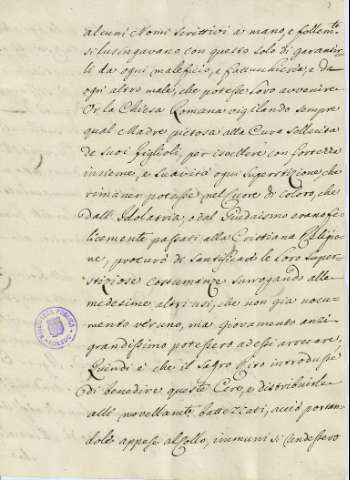 alcuni Nomi scrittivi à mano, e follemte
si lusingavano con questo solo di garantir-
li da ogni maleficio, e fattuchieria, e da
ogni altro male, che potesse loro avvenire.
Or la Chiesa Romana vigilando sempre
qual Madre pietosa alla Cura sollecita
de suoi figlioli, per iscellere con fortezza
insieme, e suavità ogni superstizione, che
rimaner potesse nel Cuore di coloro, che
dall' Idolatria, o dal Giudaismo erano fe-
licemente passati alla Cristiana Religio-
ne, procurò di santificare le loro super-
stiziose costumanze surrogando alle
medesime altri usi, che non già nocu-
mento veruno, ma giovamento anzi
grandissimo potessero ad essi arrecare,
Quindi è che il sagro Rito introdusse
di benedire queste Cere, e distribuirle
alli novellamte battezzati, acciò portan-
dole appese al Collo, immuni si rendessero
BIBLIOTECA PUBLICA
TOLEDO